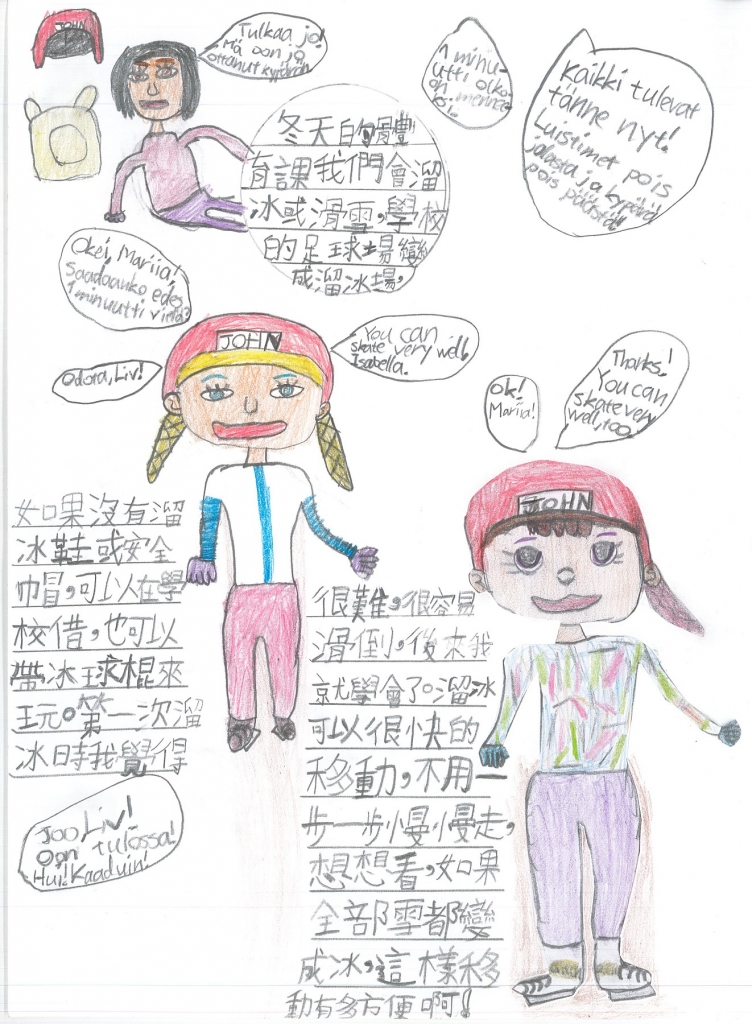 JOHN
Tulkaa jo!
Mä oon jo
ottanut kypärän
1 minu-
utti oika-
on menna-
ksi.
Kaikki tulevat
tänne nyt!
Luistimet pois
jalasta ja kypärä
pois päästä!
冬天的體
育課我們會溜
冰或滑雪,學校
的足球場變
成溜冰場,
Okei, Mariia!
Saadaanko edes
1 minuutti vielä?
Odota, Liv!
JOHN
You can
skate very well,
Isabella.
Ok!
Mariia!
Thanks!
You can
skate very
well, too.
JOHN
如果沒有溜
冰鞋或安全
帽,可以在學
校借,也可以
帶冰球棍來
玩。第一次溜
冰時我覺得
很難,很容易
滑倒,後來我
就學會了。溜冰
可以很快的
移動,不用一
步一步慢慢走,
想想看,如果
全部雪都變
成冰,這樣移
動有多方便啊!
Joo, Liv!
Oon tulossa!
Hui! Kaaduin!